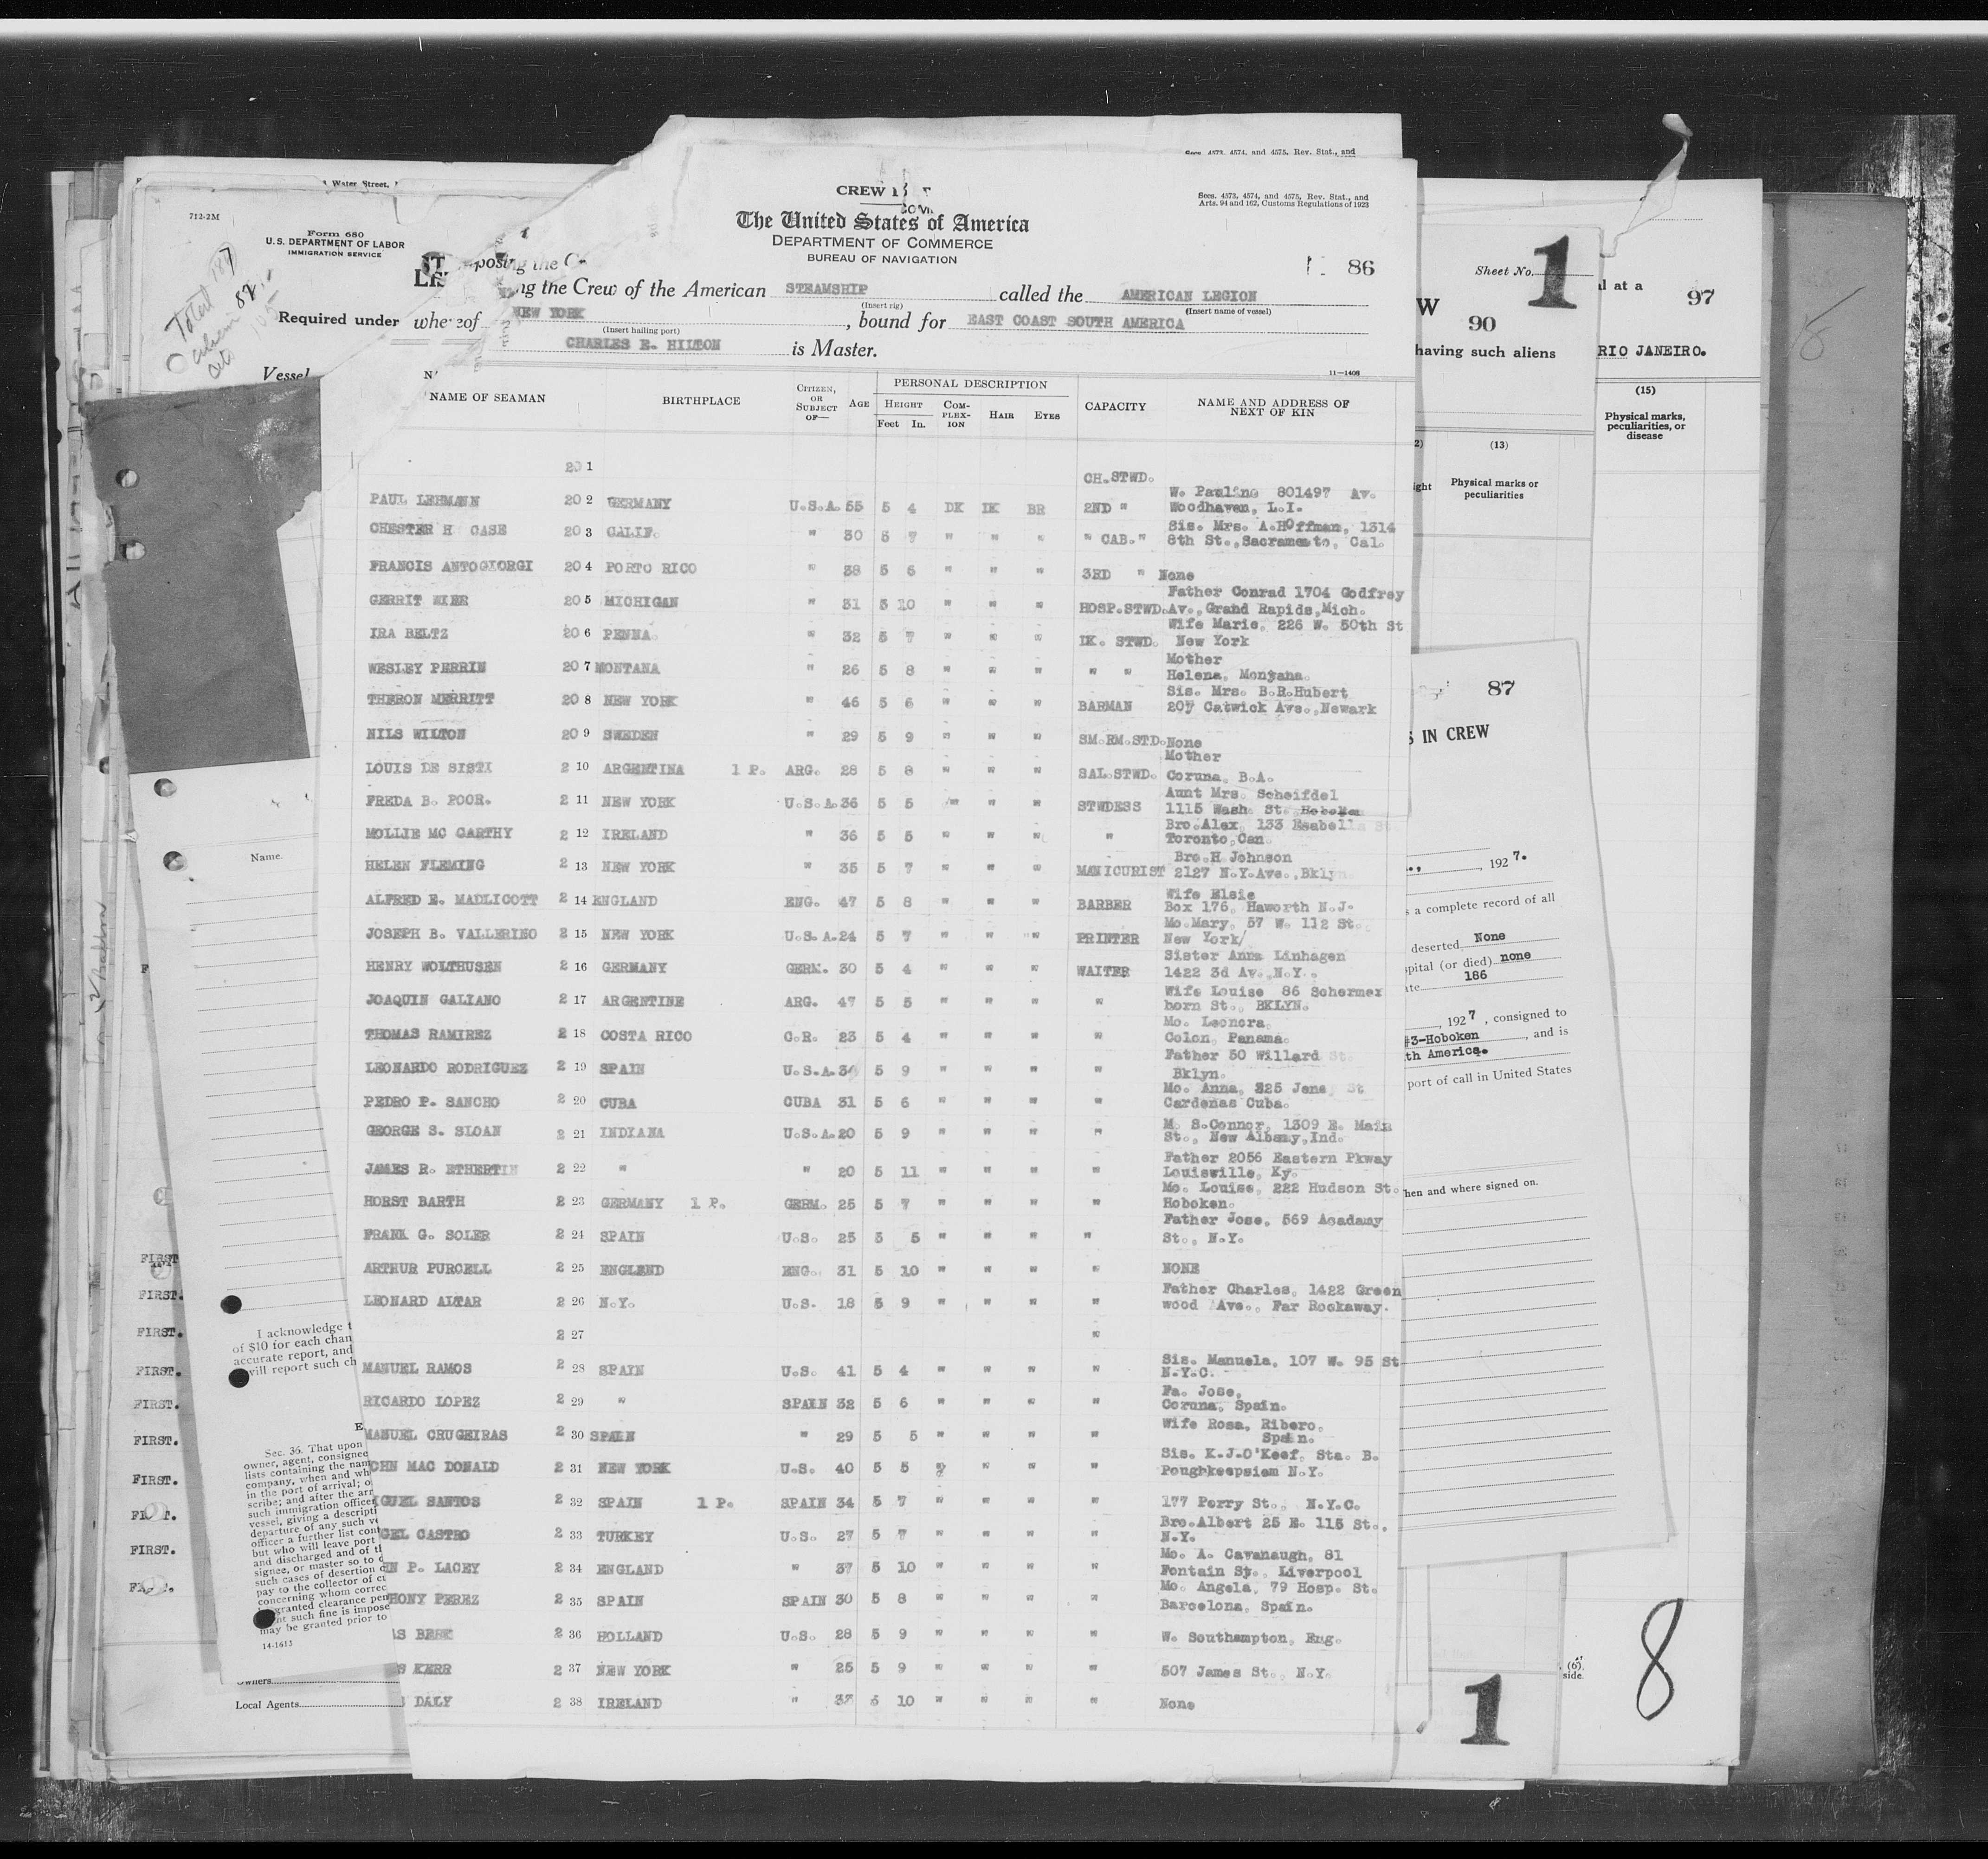 Secs. 4573, 4574, and 4575, Rev. Stat., and
Water Street,
712-2M
Form 680
U.S. DEPARTMENT OF LABOR
IMMIGRATION SERVICE
Total 187
Required under
Vessel
CREW
Secs. 4573, 4574, and 4575, Rev. Stat., and
Arts. 94 and 162, Customs Regulations of 1923
The United States of America
DEPARTMENT OF COMMERCE
BUREAU OF NAVIGATION
86
posing the
ng the Crew of the American STEAMSHIP called the AMERICAN LEGION
(Insert rig) (Insert name of vessel)
whereof NEW YORK, bound for EAST COAST SOUTH AMERICA
(Insert hailing port)
CHARLES E. HILTON is Master.
11—1406
NAME OF SEAMAN BIRTHPLACE CITIZEN, OR SUBJECT OF— AGE PERSONAL DESCRIPTION CAPACITY NAME AND ADDRESS OF NEXT OF KIN
HEIGHT COMPLEXION HAIR EYES
Feet In.
20 1 CH. STWD.
W. Pauline 801497 Av.
PAUL LEHMANN 20 2 GERMANY U.S.A. 55 5 4 DK DK BR 2ND " Woodhaven, L.I.
Sis. Mrs. A.Hoffman, 1314
CHESTER H CASE 20 3 CALIF. " 30 5 7 " " " " CAB." 8th St., Sacramento, Cal.
FRANCIS ANTOGIORGI 20 4 PORTO RICO " 38 5 6 " " " 3RD " None
Father Conrad 1704 Godfrey
GERRIT WIER 20 5 MICHIGAN " 31 5 10 " " " HOSP.STWD. Av., Grand Rapids, Mich.
Wife Marie, 226 W. 50th St
IRA BELTZ 20 6 PENNA. " 32 5 7 " " " DK. STWD. New York
Mother
WESLEY PERRIN 20 7 MONTANA " 26 5 8 " " " " " Helena, Montana.
Sis. Mrs. B.R.Hubert
THERON MERRITT 20 8 NEW YORK " 46 5 6 " " " BARMAN 207 Catwick Ave., Newark
NILS WILTON 20 9 SWEDEN " 29 5 9 " " " SM.RM.STD. None
Mother
LOUIS DE SISTI 2 10 ARGENTINA 1 P. ARG. 28 5 8 " " " SAL.STWD. Coruna, B.A.
Aunt Mrs. Scheifdel
FREDA B. POOR. 2 11 NEW YORK U.S.A. 36 5 5 " " " STWDESS 1115 Wash St. Hoboken
Bro.Alex, 133 Esabella St
MOLLIE MC CARTHY 2 12 IRELAND " 36 5 5 " " " " Toronto, Can.
Bro.H Johnson
HELEN FLEMING 2 13 NEW YORK " 35 5 7 " " " MANICURIST 2127 N.Y.Ave., Bklyn
Wife Elsie
ALFRED E. MADLICOTT 2 14 ENGLAND ENG. 47 5 8 " " " BARBER Box 176, Haworth N.J.
Mo.Mary, 57 W. 112 St.
JOSEPH B. VALLERINO 2 15 NEW YORK U.S.A. 24 5 7 " " " PRINTER New York/
Sister Anna Linhagen
HENRY WOLTHUSEN 2 16 GERMANY GERM. 30 5 4 " " " WAITER 1422 3d Av., N.Y.
Wife Louise 86 Schermer
JOAQUIN GALIANO 2 17 ARGENTINE ARG. 47 5 5 " " " " horn St., BKLYN.
Mo. Leonora,
THOMAS RAMIREZ 2 18 COSTA RICO C.R. 23 5 4 " " " " Colon, Panama.
Father 50 Willard St.
LEONARDO RODRIGUEZ 2 19 SPAIN U.S.A. 5 9 " " " " Bklyn.
Mo. Anna, 325 Jena, St
PEDRO P. SANCHO 2 20 CUBA CUBA 31 5 6 " " " " Cardenas Cuba.
M. S.Connor, 1309 E. Main
GEORGE S. SLOAN 2 21 INDIANA U.S.A. 20 5 9 " " " " St., New Albany, Ind.
Father 2056 Eastern Pkway
JAMES R. ETHERTIN 2 22 " " 20 5 11 " " " " Louisville, Ky.
Mo. Louise, 222 Hudson St.
HORST BARTH 2 23 GERMANY 1 P. GERM. 25 5 7 " " " " Hoboken.
Father Jose, 569 Acadamy
FRANK G. SOLER 2 24 SPAIN U.S. 25 5 5 " " " " St., N.Y.
ARTHUR PURCELL 2 25 ENGLEND ENG. 31 5 10 " " " " NONE
Father Charles, 1422 Green
LEONARD ALTAR 2 26 N.Y. U.S. 18 5 9 " " " " wood Ave., Far Rockaway.
2 27 "
Sis. Manuela, 107 W. 95 St
MANUEL RAMOS 2 28 SPAIN U.S. 41 5 4 " " " " N.Y.C.
Fa. Jose,
RICARDO LOPEZ 2 29 " SPAIN 32 5 6 " " " " Coruna, Spain.
Wife Rosa, Ribero,
MANUEL CRUGEIRAS 2 30 SPAIN " 29 5 5 " " " " Spain.
Sis. K.J.O'Keef, Sta. B.
OHN MAC DONALD 2 31 NEW YORK U.S. 40 5 5 " " " Poughkeepsiem N.Y.
IGUEL SANTOS 2 32 SPAIN 1 P. SPAIN 34 5 7 " " " " 177 Perry St., N.Y.C.
Bro.Albert 25 E. 115 St.,
GEL CASTRO 2 33 TURKEY U.S. 27 5 7 " " " " N.Y.
Mo. A. Cavanaugh, 81
HN P. LACEY 2 34 ENGLAND " 37 5 10 " " " " Fontain St., Liverpool
Mo. Angela, 79 Hosp. St.
HONY PEREZ 2 35 SPAIN SPAIN 30 5 8 " " " " Barcelona, Spain.
AS BEEK 2 36 HOLLAND U.S. 28 5 9 " " " " W. Southampton, Eng.
S KERR 2 37 NEW YORK " 25 5 9 " " " " 507 James St., N.Y.
DALY 2 38 IRELAND " 5 10 " " " " None
Name.
FIRST
FIRST.
FIRST.
FIRST.
FIRST.
FIRST.
FIRST.
FIRST.
I acknowledge t
of $10 for each chan
accurate report, and
will report such ch
Sec. 36. That upon
owner, agent, consignee
lists containing the nam
company, when and wh
in the port of arrival; o
scribe; and after the arr
such immigration officer
vessel, giving a descripti
departure of any such ve
officer a further list cont
but who will leave port
and discharged and of th
signee, or master so to d
such cases of desertion o
pay to the collector of cu
concerning whom correc
granted clearance pen
such fine is impose
may be granted prior to
14-1613
Owners
Local Agents
Sheet No. 1
W
90
having such aliens
ght
(13)
Physical marks or
peculiarities
al at a
97
RIO JANEIRO.
(15)
Physical marks,
peculiarities, or
disease
87
S IN CREW
, 1927.
s a complete record of all
deserted None
spital (or died) none
186
, 1927, consigned to
#3-Hoboken, and is
th America.
port of call in United States
hen and where signed on.
(6),
side.
1
8